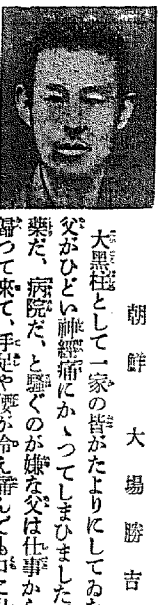 朝鮮　大場勝吉
大黑柱として一家の皆がたよりにしてゐ
父がひどい神經痛にかゝつてしまひました
藥だ、病院だ、と騷ぐのが嫌な父は仕事か
歸つて來て、手足や腰が冷え